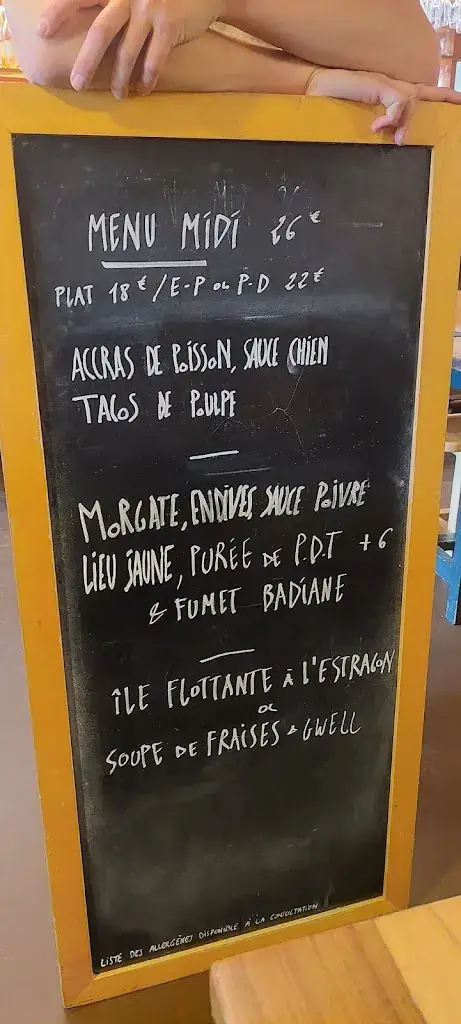 MENU MIDI 26 €
PLAT 18 € / E-P ou P-D 22 €
ACCRAS DE POISSON, SAUCE CHIEN
TACOS DE POULPE
MORGATE, ENDIVES SAUCE POIVRE
LIEU JAUNE, PURÉE DE P.D.T + 6
& FUMET BADIANE
ÎLE FLOTTANTE À L'ESTRAGON
OU
SOUPE DE FRAISES & GWELL
LISTE DES ALLERGÈNES DISPONIBLE À LA CONSULTATION